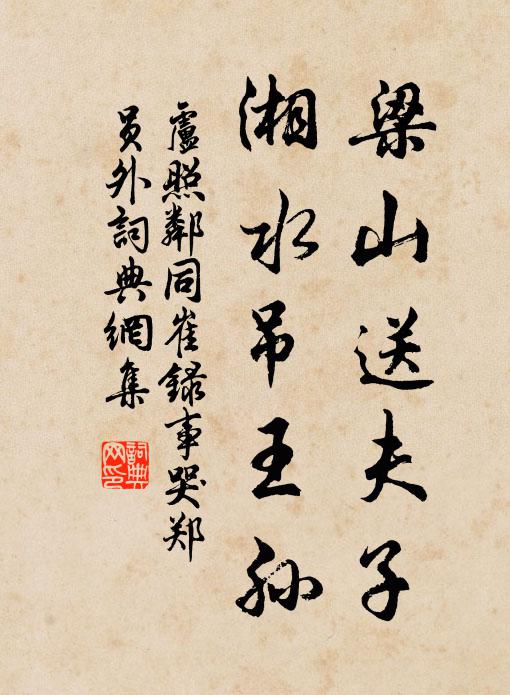 梁山送夫子
湘水吊王孙
盧照鄰同崔録事哭郑
员外詞典網集
詞典
网印